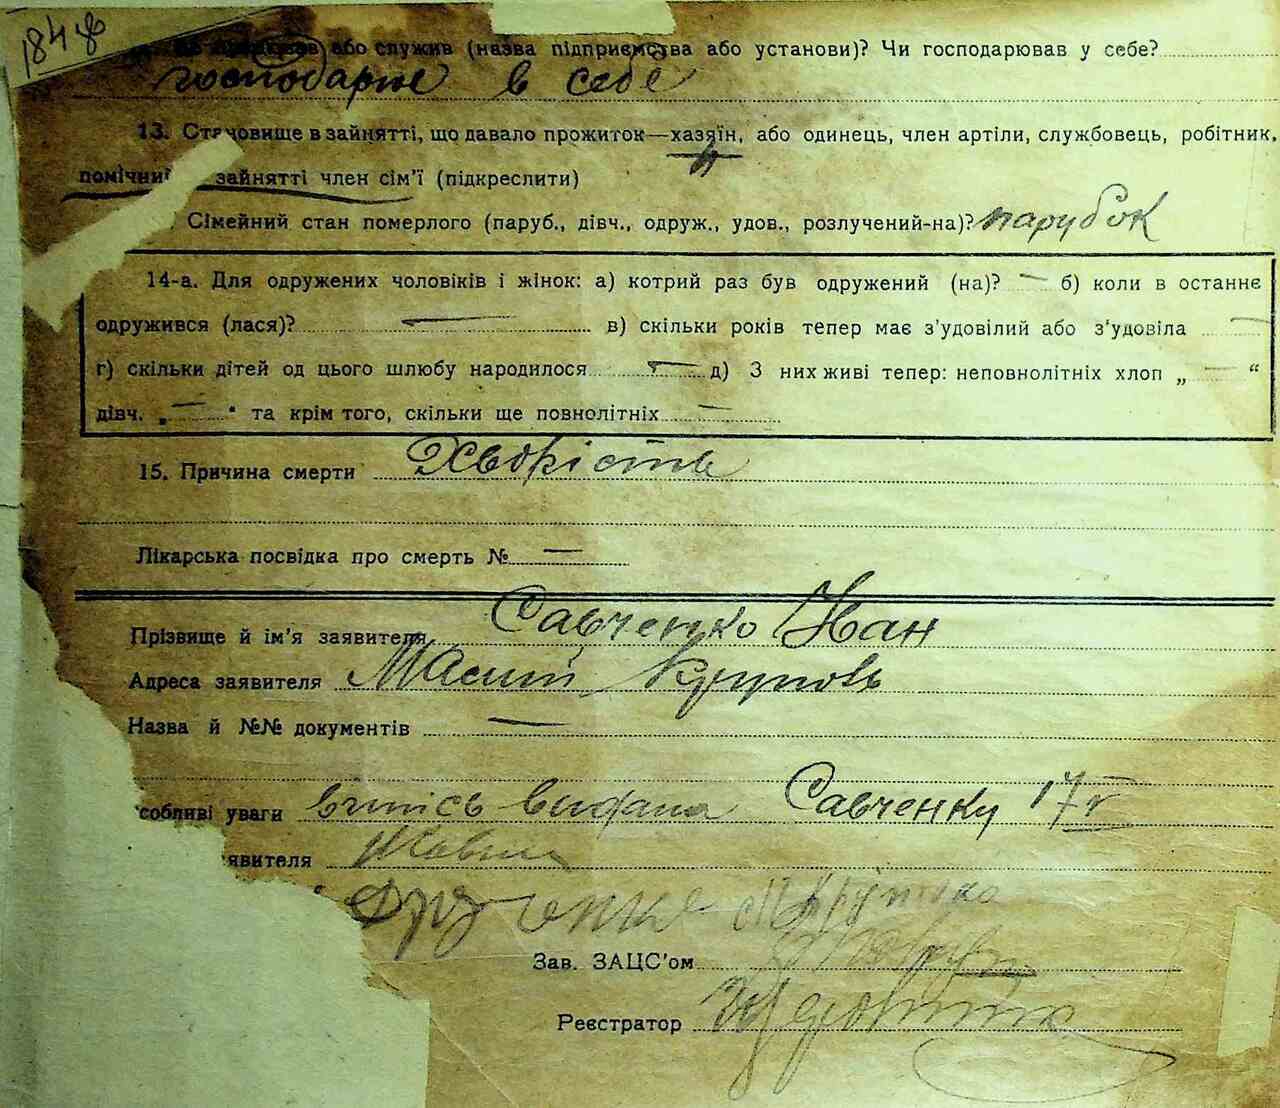 184
або служив (назва підприємства або установи)? Чи господарював у себе?
господарює в себе
13. Становище в зайнятті, що давало прожиток—хазяїн, або одинець, член артілі, службовець, робітник,
помічний зайнятті член сім'ї (підкреслити)
Сімейний стан померлого (паруб., дівч., одруж., удов., розлучений-на)? парубок
14-а. Для одружених чоловіків і жінок: а) котрий раз був одружений (на)? — б) коли в останнє
одружився (лася)? — в) скільки років тепер має з'удовілий або з'удовіла —
г) скільки дітей од цього шлюбу народилося — д) З них живі тепер: неповнолітніх хлоп „ — “
дівч. „ — “ та крім того, скільки ще повнолітніх —
15. Причина смерти Хворість
Лікарська посвідка про смерть № —
Прізвище й ім'я заявителя Савченко Іван
Адреса заявителя
Назва й №№ документів —
собливі уваги видана Савченку 17
явителя
Зав. ЗАЦС'ом
Реєстратор